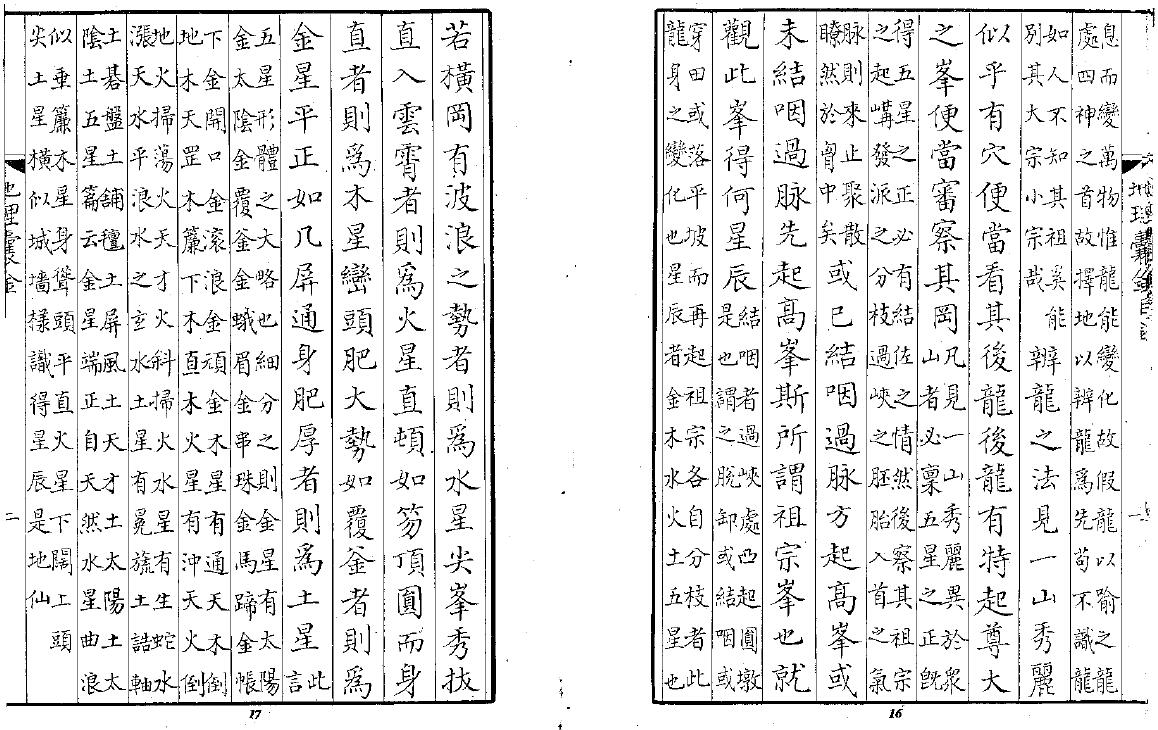 息而變萬物惟龍能變化故假龍以喻之龍
處四神之首故擇地以辨龍爲先苟不識龍
如人不知其祖奚能
別其大宗小宗哉
辨龍之法見一山秀麗
似乎有穴便當看其後龍後龍有特起尊大
之峯便當審察其岡
凡見一山秀麗異於衆
山者必稟五星之正旣
得五星之正必有結佐之情然後察其祖宗
之起嶙發派之分枝過峽之胚胎入首之氣
脈則來止聚散
瞭然於胷中矣
或已結咽過脉方起高峯或
未結咽過脉先起高峯斯所謂祖宗峯也就
觀此峯得何星辰
結咽者過峽處凹起圓墩
是也謂之脫卸或結咽或
穿田或落平坡而再起祖宗各自分枝者此
龍身之變化也星辰者金木水火土五星也
16
若橫岡有波浪之勢者則爲水星尖峯秀拔
直入雲霄者則爲火星直頓如笏頂圓而身
直者則爲木星巒頭肥大勢如覆釜者則爲
金星平正如几屏通身肥厚者則爲土星
此
言
五星形體之大略也細分之則金星有太陽
金太陰金覆釜金蛾眉金串珠金馬蹄金帳
下金開口金滾浪金頑金木星有通天木倒
地木天罡木簾下木直木火星有沖天火倒
地火掃蕩火天才火斜掃火水星有生蛇水
漲天水平浪水之玄水土星有冕旒土誥軸
土碁盤土鋪氊土屏風土天才土太陽土太
陰土五星篇云金星端正自天然水星曲浪
似垂簾木星身聳頭平直火星下闊上頭
尖土星橫似城墻㨾識得星辰是地仙
地理囊金
二
17